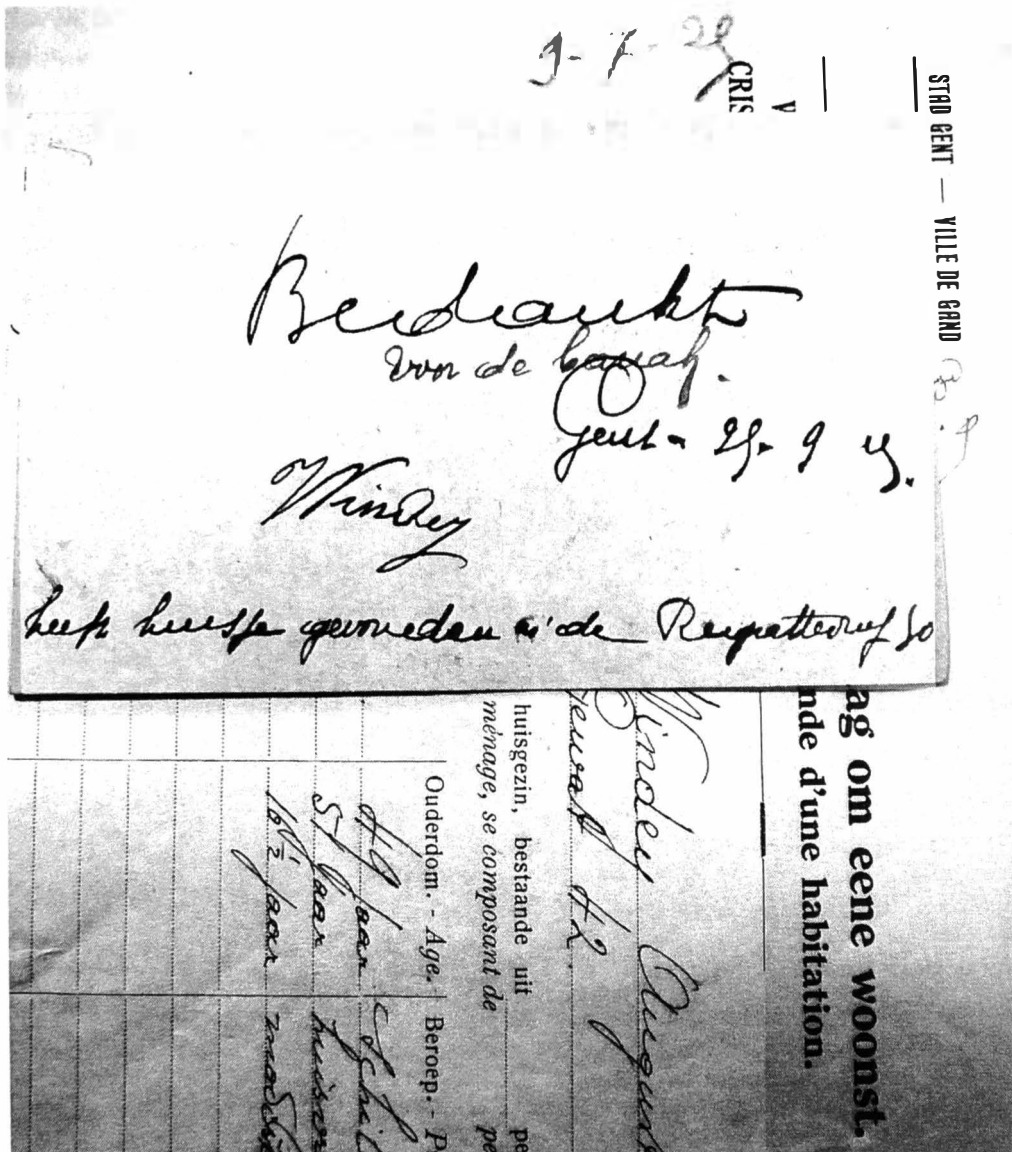 9-7-29
CRIS
V
STAD GENT — VILLE DE GAND
Bedankt
voor de
Gent - 25- 9
Windey
heeft huisje gevonden in de 30
ag om eene woonst.
nde d'une habitation.
Windey August
42.
huisgezin, bestaande uit pe
ménage, se composant de pe
Ouderdom. - Age. Beroep. - P
49 jaar Schil
51 jaar huisv
16½ jaar